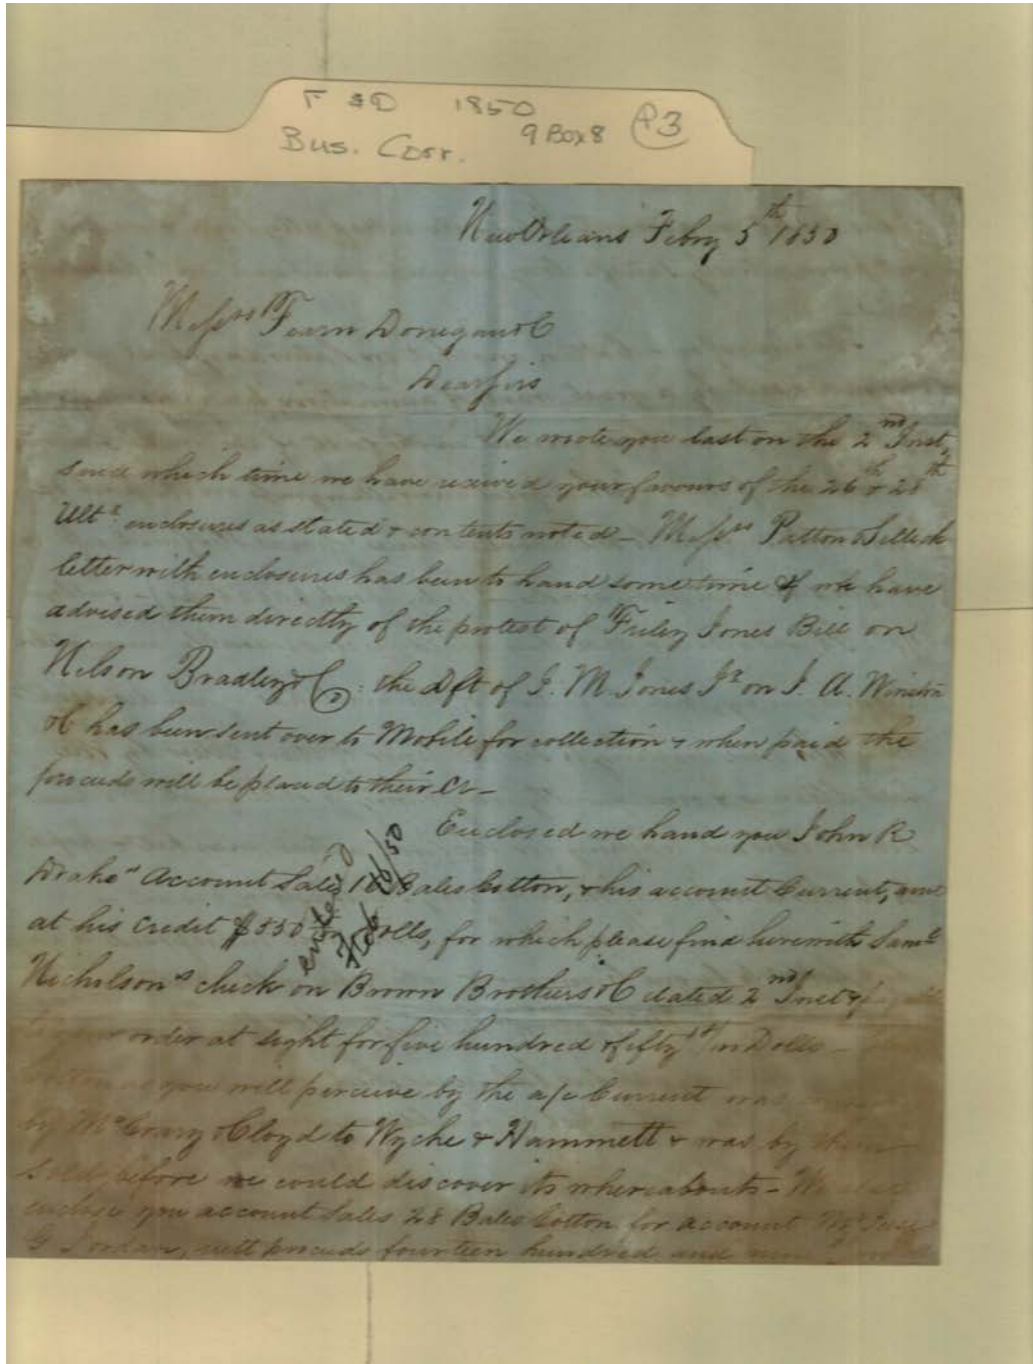 F & D 1850
9 Box 8 P3
Bus. Corr.
New Orleans Feby 5th 1850
Messrs Fearn Donegan & C
Dear Sirs
We wrote you last on the 2nd Inst,
since which time we have received your favours of the 26th & 28th
Ulto enclosures as stated & contents noted - Messrs Patton &
letter with enclosures has been to hand some time & we have
advised them directly of the protest of Jones Bill on
Nelson Bradley & Co: the Dft of J. M Jones Jr on J. A. Winston
& C has been sent over to Mobile for collection & when paid the
proceeds will be placed to their Cr -
Enclosed we hand you John R
Drakes Account Sales Bales Cotton, & his account Current, amt
at his credit $550 Dolls, for which please find herewith Saml
entered
Feb 16/50
Nicholsons check on Brown Brothers & C dated 2nd Inst &
order at sight for five hundred & fifty Dolls -
Cotton as you will perceive by the a/c Current was
by McCrary & Cloyd to Wyche & Hammett & was by them
Sold before we could discover its whereabouts - We also
enclose you account Sales 28 Bales Cotton for account
G Jordan, nett proceeds fourteen hundred and